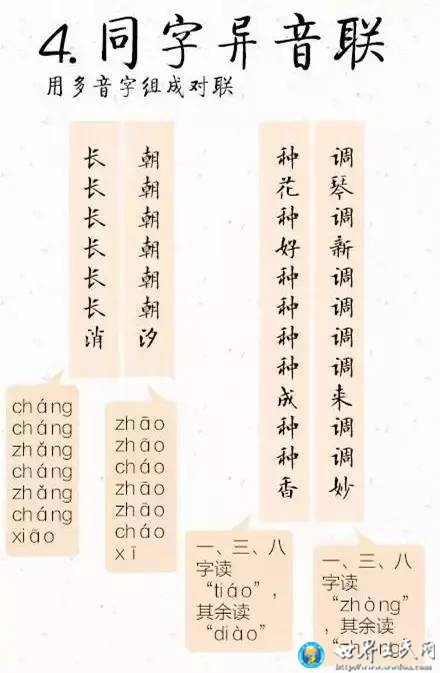 4.同字异音联
用多音字组成对联
长长长长长长消
朝朝朝朝朝朝汐
种花种好种种种种成种种香
调琴调新调调调调来调调妙
cháng
cháng
zhǎng
cháng
zhǎng
cháng
xiāo
zhāo
zhāo
cháo
zhāo
zhāo
cháo
xī
一、三、八
字读
“tiáo”，
其余读
“diào”
一、三、八
字读
“zhòng”
，其余读
世界王氏网